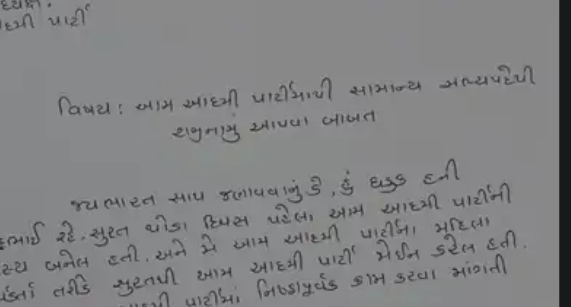 આદમી પાર્ટી
વિષય : આમ આદમી પાર્ટીમાંથી સામાન્ય સભ્યપદેથી
રાજીનામું આપવા બાબત
જયભારત સાથ જણાવવાનું કે, હું
રહે. સુરત થોડા દિવસ પહેલા આમ આદમી પાર્ટીની
બનેલ હતી. અને મે આમ આદમી પાર્ટીમાં મહિલા
તરીકે સુરતથી આમ આદમી પાર્ટી જોઈન કરેલ હતી.
પાર્ટીમાં નિષ્ઠાપૂર્વક કામ કરવા માંગતી